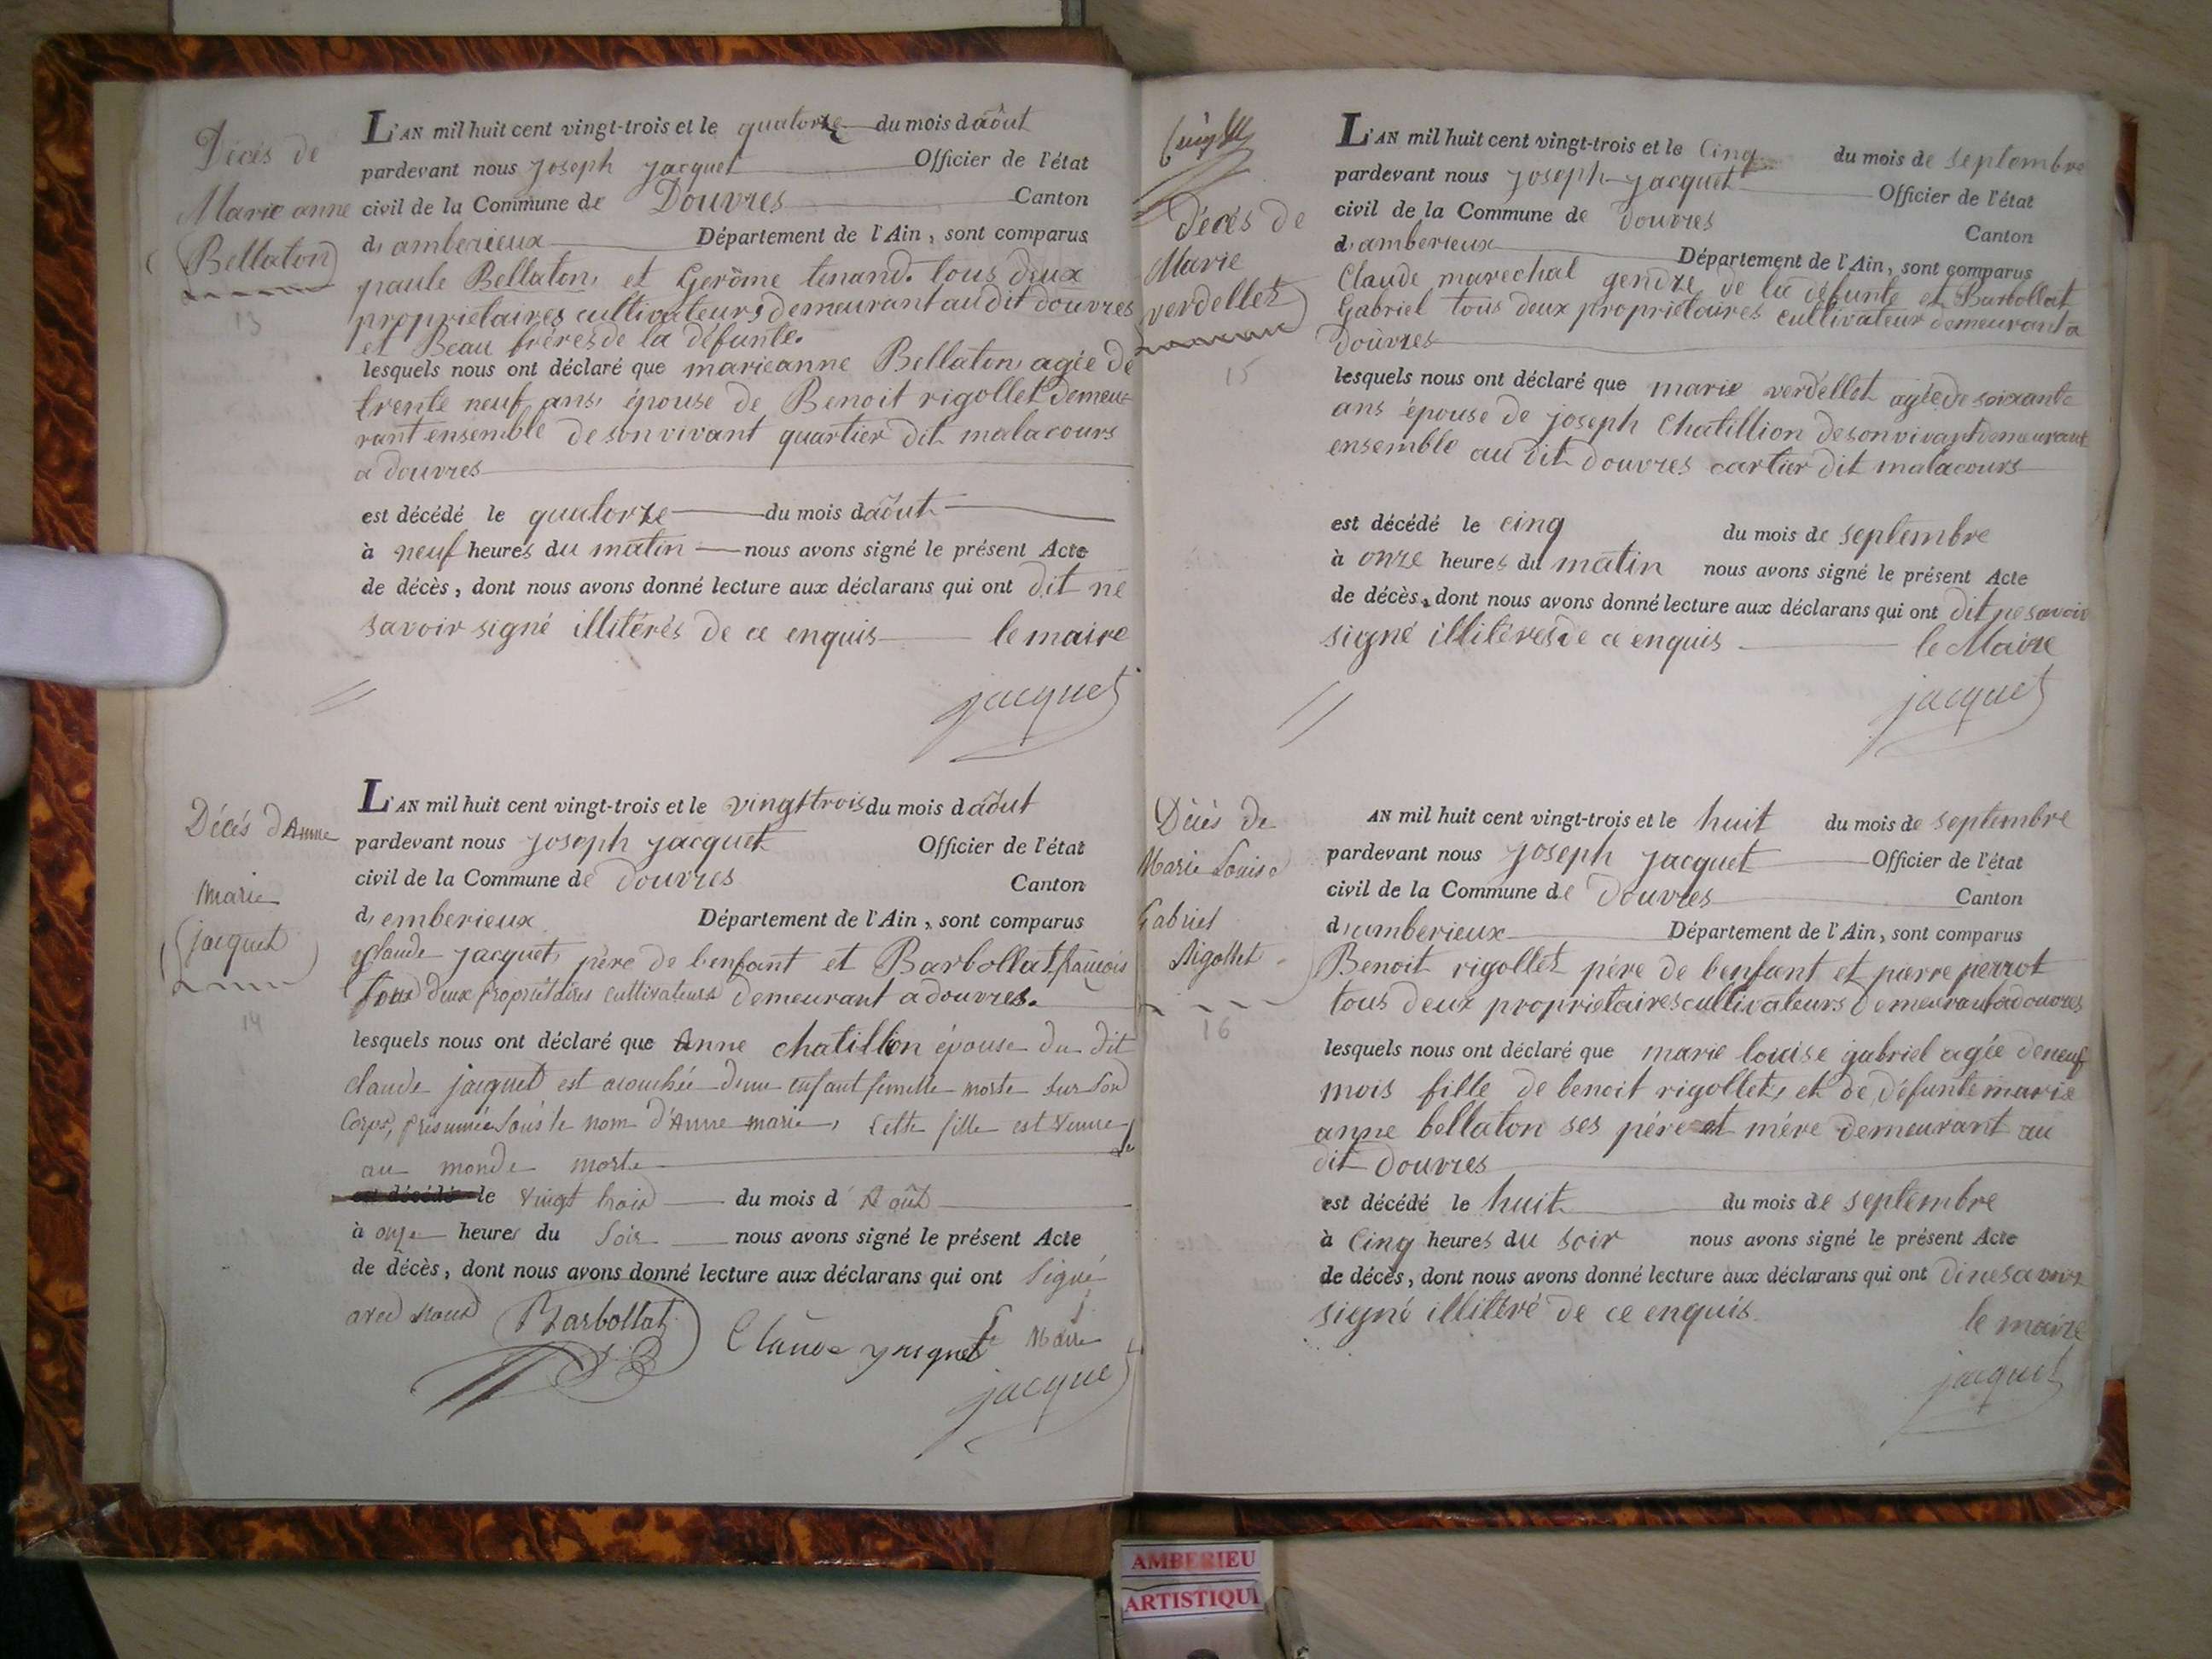 Décés de
Marie anne
Bellaton
13
L'AN mil huit cent vingt-trois et le quatorze du mois d'aôut
pardevant nous joseph jacquet Officier de l'état
civil de la Commune de Douvres Canton
d'amberieux Département de l'Ain, sont comparus
paule Bellaton, et Gerôme tenand. tous deux
proprietaires cultivateurs demeurant au dit douvres
et Beau fréres de la défunte.
lesquels nous ont déclaré que marieanne Bellaton, agée de
trente neuf ans, épouse de Benoit rigollet demeu=
rant ensemble de son vivant quartier dit malacours
a douvres
est décédé le quatorze du mois d'aôut
à neuf heures du matin nous avons signé le présent Acte
de décès, dont nous avons donné lecture aux déclarans qui ont dit ne
savoir signé illitérés de ce enquis le maire
jacquet
Décés d'Anne
Marie
jacquet
14
L'AN mil huit cent vingt-trois et le vingt trois du mois d'aôut
pardevant nous joseph jacquet Officier de l'état
civil de la Commune de douvres Canton
d'emberieux Département de l'Ain, sont comparus
glaude jacquet, père de lenfant et Barbollat françois
tous deux propriétaires cultivateurs demeurant a douvres.
lesquels nous ont déclaré que Anne chatillion épouse du dit
claude jacquet est acouchée dune enfant femelle morte sur son
Corps, présumée sous le nom d'Anne marie, Cette fille est venue
au monde morte
est décédé le vingt trois du mois d'Août
à onze heures du soir nous avons signé le présent Acte
de décès, dont nous avons donné lecture aux déclarans qui ont signé
avec nous Barbollat Claude jacquet le Maire
jacquet
Décés de
Marie
verdellet
15
L'AN mil huit cent vingt-trois et le Cinq du mois de septembre
pardevant nous joseph jacquet Officier de l'état
civil de la Commune de douvres Canton
d'amberieux Département de l'Ain, sont comparus
Claude marechal gendre de la défunte et Barbollat
Gabriel tous deux proprietaires cultivateur demeurant a
douvres
lesquels nous ont déclaré que marie verdellet agée de soixante
ans épouse de joseph Chatillion de son vivant demeurant
ensemble au dit douvres cartier dit malacours
est décédé le cinq du mois de septembre
à onze heures du matin nous avons signé le présent Acte
de décès, dont nous avons donné lecture aux déclarans qui ont dit ne savoir
signé illitéres de ce enquis le Maire
jacquet
Décès de
Marie Louise
Gabriel
Rigollet
16
AN mil huit cent vingt-trois et le huit du mois de septembre
pardevant nous joseph jacquet Officier de l'état
civil de la Commune de Douvres Canton
d'amberieux Département de l'Ain, sont comparus
Benoit rigollet père de lenfant et pierre perrot
tous deux proprietaires cultivateurs demeurant a douvres
lesquels nous ont déclaré que marie louise gabriel agée de neuf
mois fille de benoit rigollet, et de défunte marie
anne bellaton ses pére et mére demeurant au
dit douvres
est décédé le huit du mois de septembre
à Cinq heures du soir nous avons signé le présent Acte
de décès, dont nous avons donné lecture aux déclarans qui ont
signé illitéré de ce enquis. le maire
jacquet
AMBERIEU
ARTISTIQU